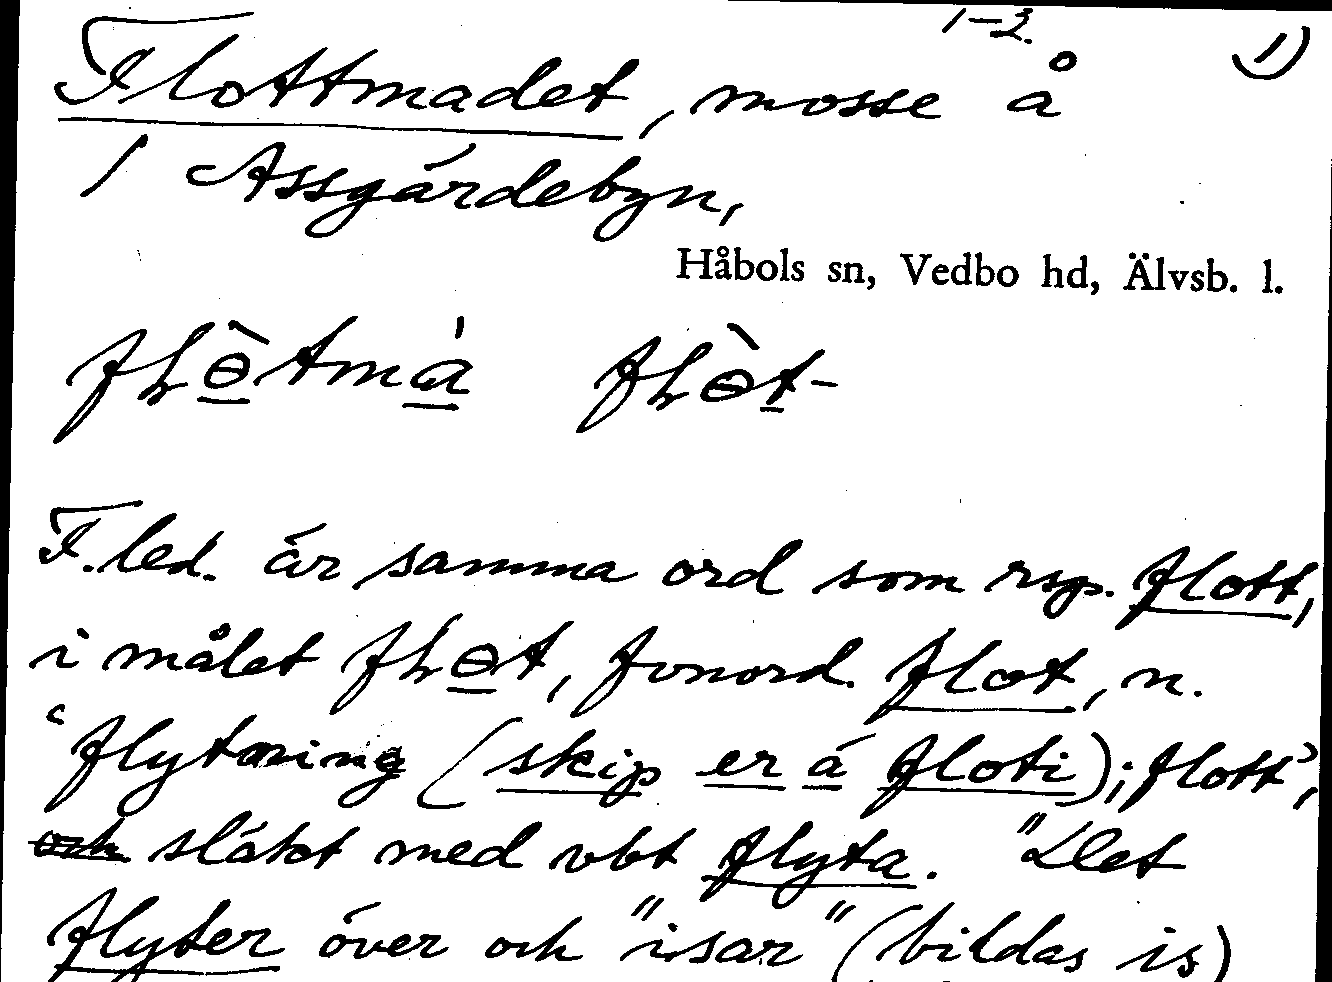 1-3. 1)
Flottmadet, mosse å
/ Assgärdebyn,
Håbols sn, Vedbo hd, Älvsb. l.
F.led. är samma ord som rsp. flott,
i målet flɵt, fvnord. flot, n.
‘flytning (skip er á floti); flott’,
och släkt med vbt flyta. "Det
flyter över och "isar" (bildas is)